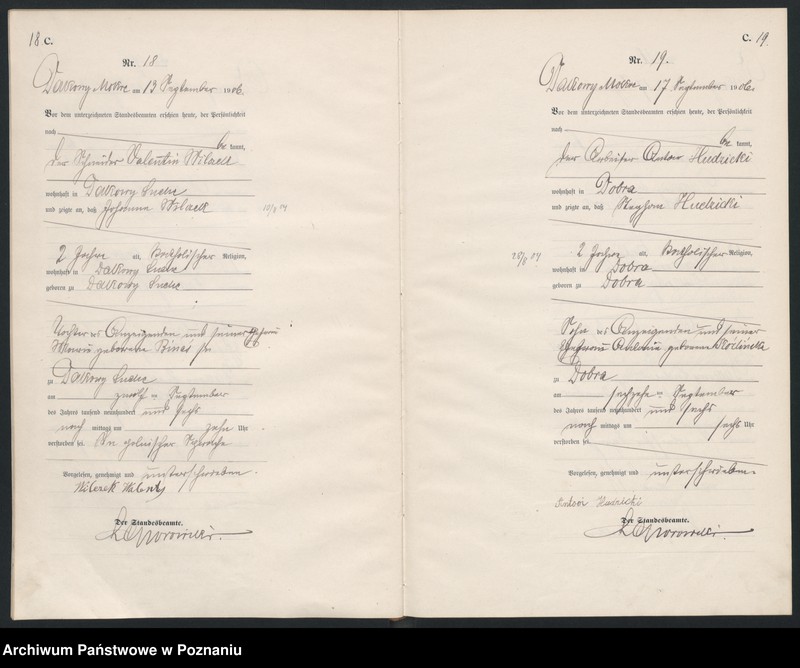 18 C.
Nr. 18
Dakowy Mokre am 13 September 1906.
Vor dem unterzeichneten Standesbeamten erschien heute, der Persönlichkeit
nach
be kannt,
der Schneider Valentin
wohnhaft in Dakowy Suche
und zeigte an, daß Johanna
2 Jahre alt, katholischer Religion,
wohnhaft in Dakowy Suche
geboren zu Dakowy Suche
Tochter des Anzeigenden und seiner Ehefrau
geborene
zu Dakowy Suche
am zwölften September
des Jahres tausend neunhundert und sechs
nach mittags um zehn Uhr
verstorben sei. In polnischer Sprache
Vorgelesen, genehmigt und unterschrieben.
Der Standesbeamte.
C. 19.
Nr. 19.
Dakowy Mokre am 17 September 1906.
Vor dem unterzeichneten Standesbeamten erschien heute, der Persönlichkeit
nach
be kannt,
der Arbeiter Anton Hudzicki
wohnhaft in Dobra
und zeigte an, daß Stephan Hudzicki
2 Jahre alt, katholischer Religion,
wohnhaft in Dobra
geboren zu Dobra
Sohn des Anzeigenden und seiner
Ehefrau geborene
zu Dobra
am September
des Jahres tausend neunhundert und sechs
nach mittags um sechs Uhr
verstorben sei.
Vorgelesen, genehmigt und unterschrieben.
Antoni Hudzicki
Der Standesbeamte.
Archiwum Państwowe w Poznaniu